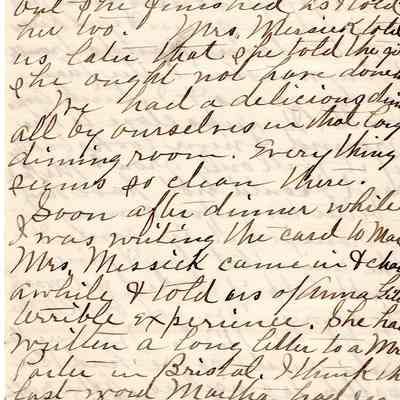 out she finished as I told
her too. Mrs. Messick told
us later that she told the
she ought not have done
We had a delicious din
all by ourselves in that big
dinning room. Everything
seems so clean there.
Soon after dinner while
I was writing the card to
Mrs. Messick came in & cha
awhile & told us of Anna
terrible experience. She had
written a long letter to a Mr
Porter in Bristol. I think th
last word Martha had